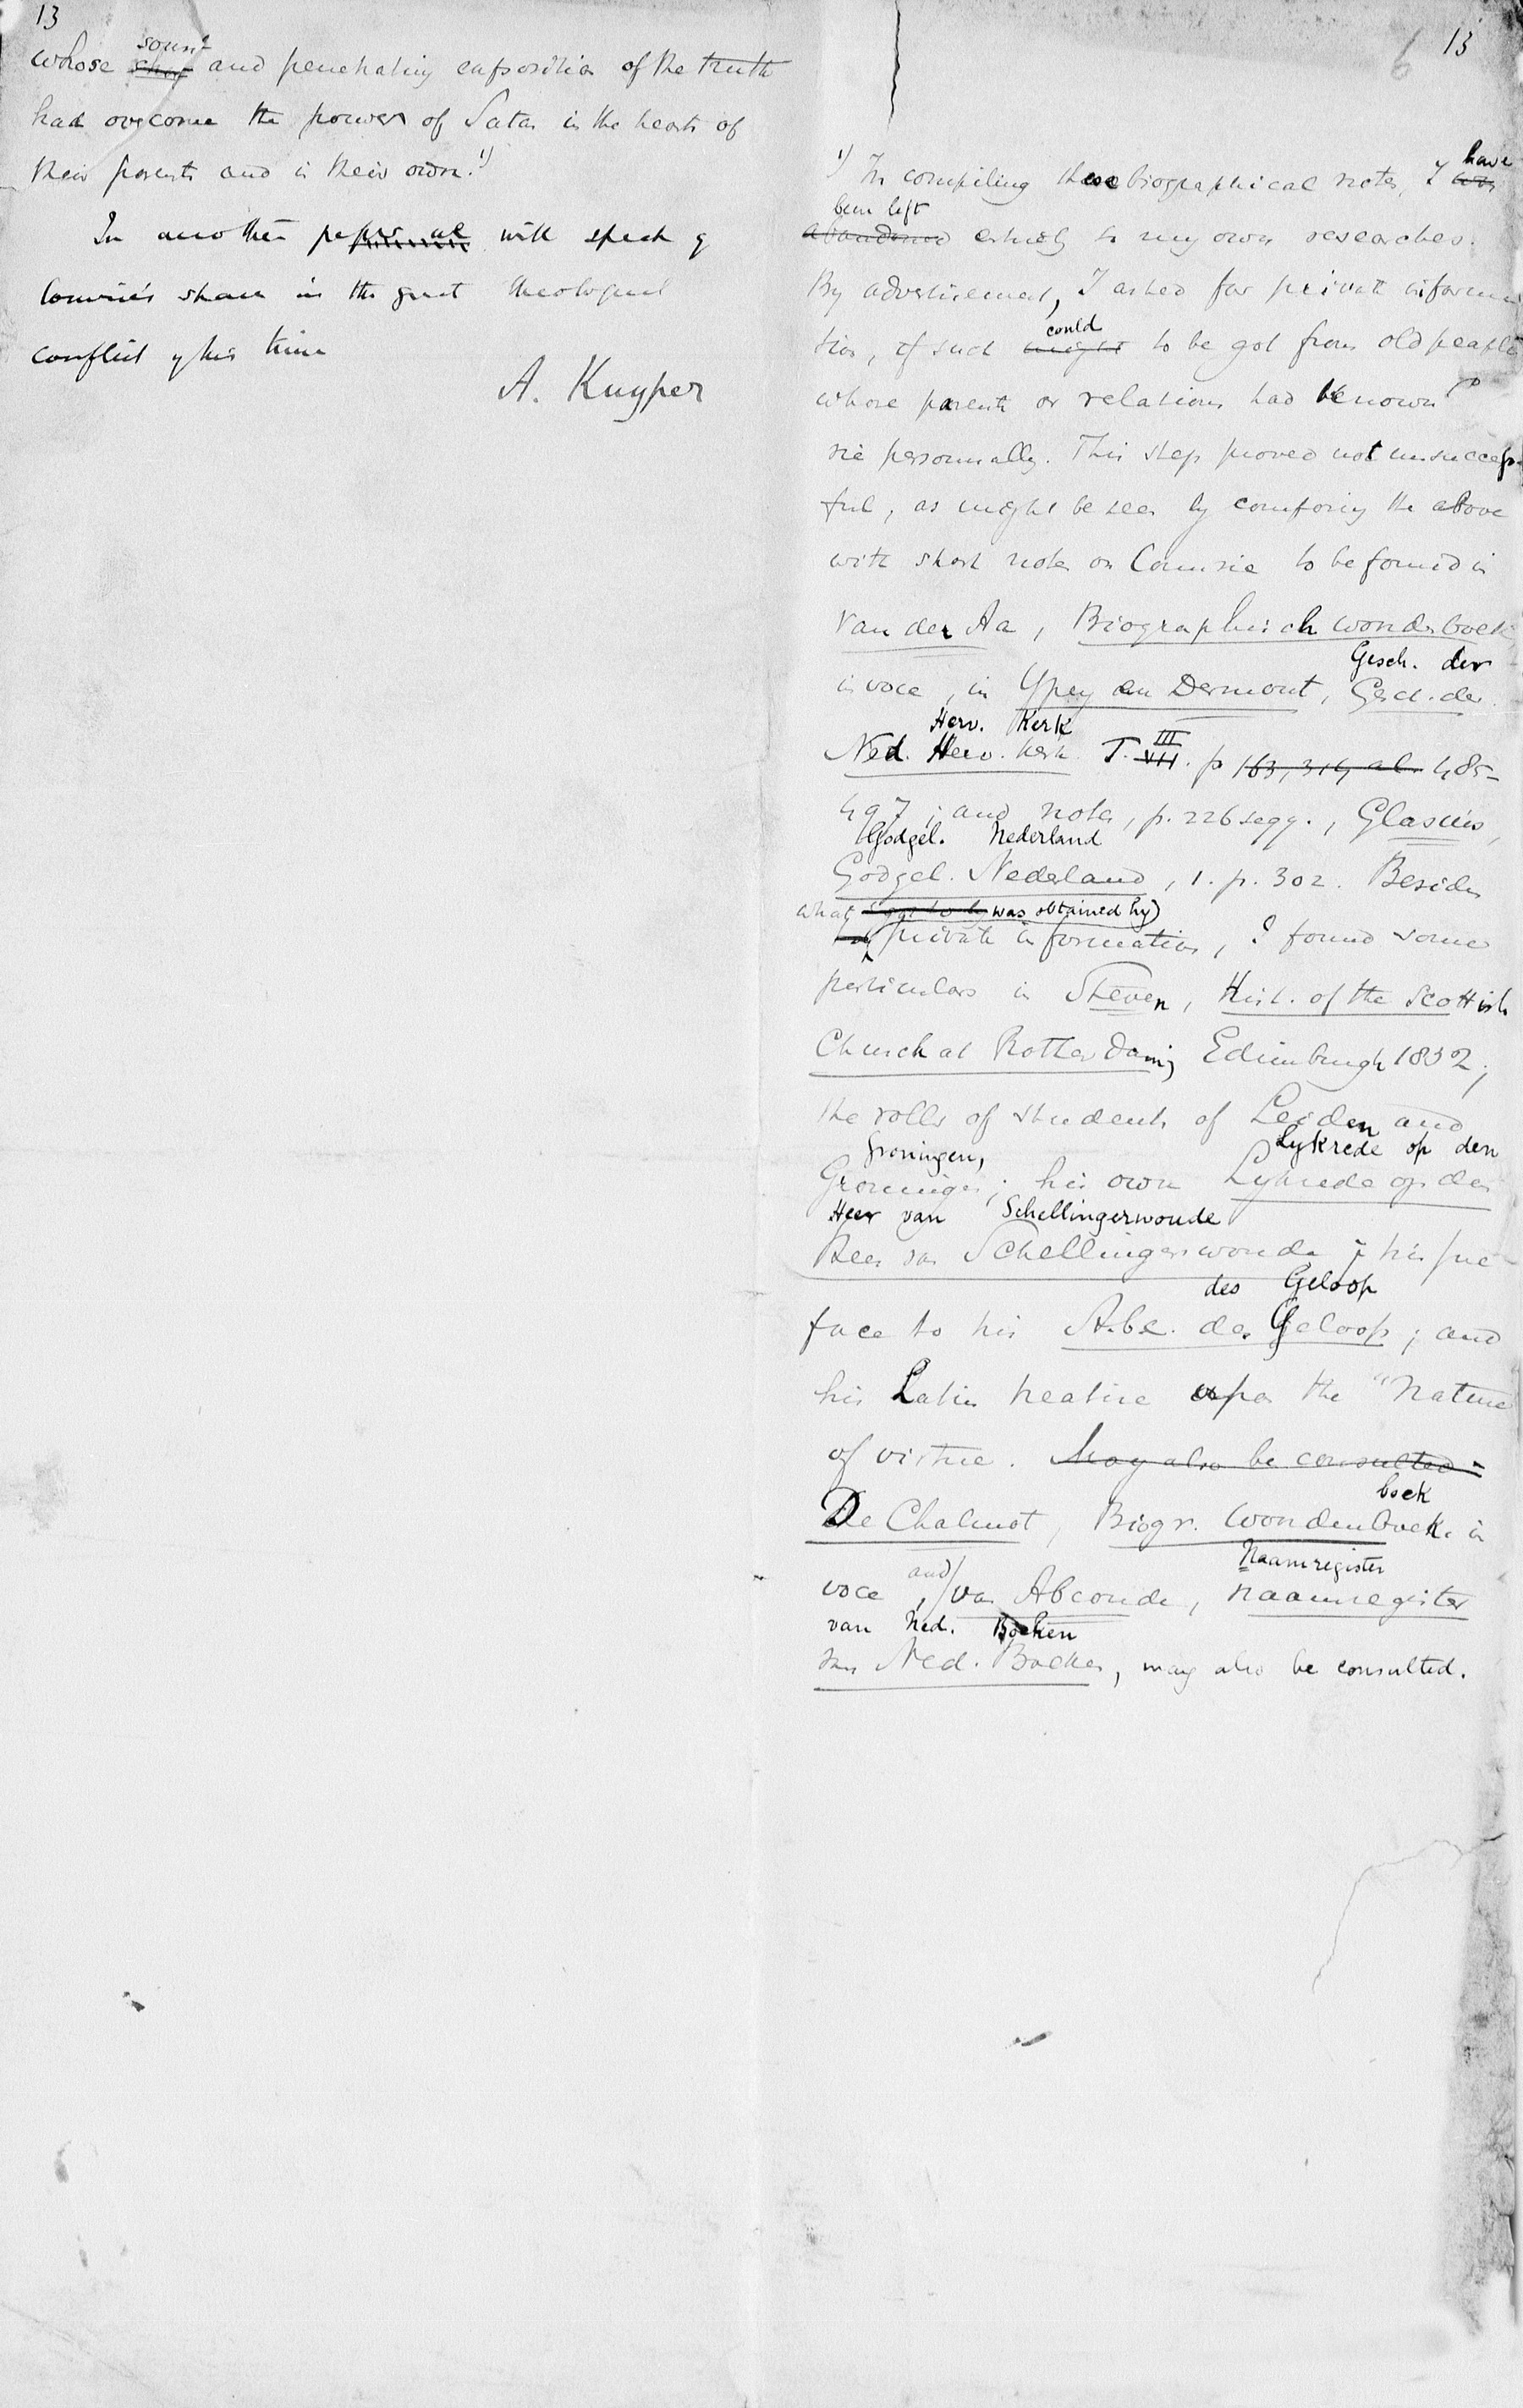 13
sound
whose sharp and penetrating exposition of the truth
had overcome the power of Satan in the hearts of
their parents and in their own.¹)
In another paper we will speak of
Comrie's share in the great theological
conflict of his time
A. Kuyper
6 13
have
¹) In compiling these biographical notes, I was
been left
abandoned entirely to my own researches.
By advertisement, I asked for private informa
could
tion, if such might to be got from old people
whose parents or relations had known
rie personally. This step proved not unsuccess-
ful, as might be seen by comparing the above
with short notes on Comrie to be found in
Van der Aa, Biographisch woordenboek,
Gesch. der
in voce, in Ypey en Dermout, Gesch. der
Herv. Kerk
Ned. Herv. kerk T. III VII. p 163, 314 al. 485-
497; and notes, p. 226 seqq., Glasius,
Godgel. Nederland
Godgel. Nederland, 1. p. 302. Besides
what was obtained by
private information, I found some
particulars in Steven, Hist. of the Scottish
Church at Rotterdam, Edinburgh 1832;
the rolls of students of Leiden and
Groningen, Lykrede op den
Groningen; his own Lykrede op den
Heer van Schellingerwoude
Heer van Schellingerwoude; his pre
des Geloop
face to his A.b.c. des Geloofs; and
his Latin treatise upon the "Nature
of virtue. May also be consulted =
boek
De Chalmot, Biogr. Woordenboek. in
and Naamregister
voce, van Abcoude, naamregister
van Ned. Boeken
van Ned. Boeken, may also be consulted.